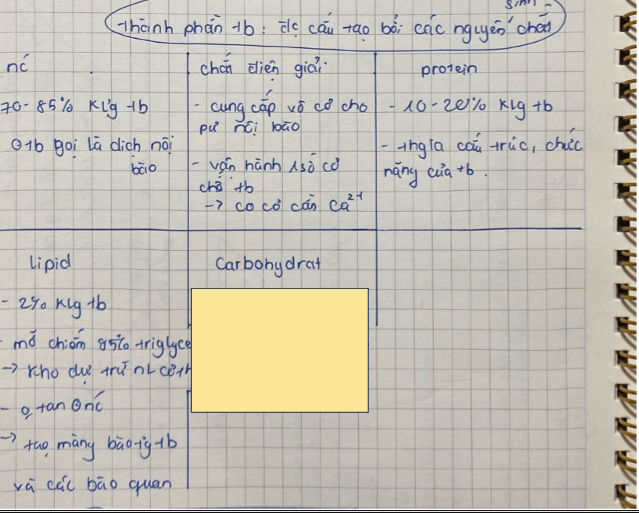 thành phần tb: đc cấu tạo bởi các nguyên chất
sinh
nc
70-85% Klg tb
gọi là dịch nội
bào
chất điện giải
- cung cấp vô cơ cho
pư nội bào
- vận hành 1 số cơ
chế tb
→ co cơ cần Ca²⁺
protein
- 10-20% Klg tb
- thgia cấu trúc, chức
năng của tb.
lipid
- 2% Klg tb
- mỡ chiếm 95% triglyce
→ Kho dự trữ nL
- tan nc
→ tạo màng bào tg tb
và các bào quan
Carbohydrat